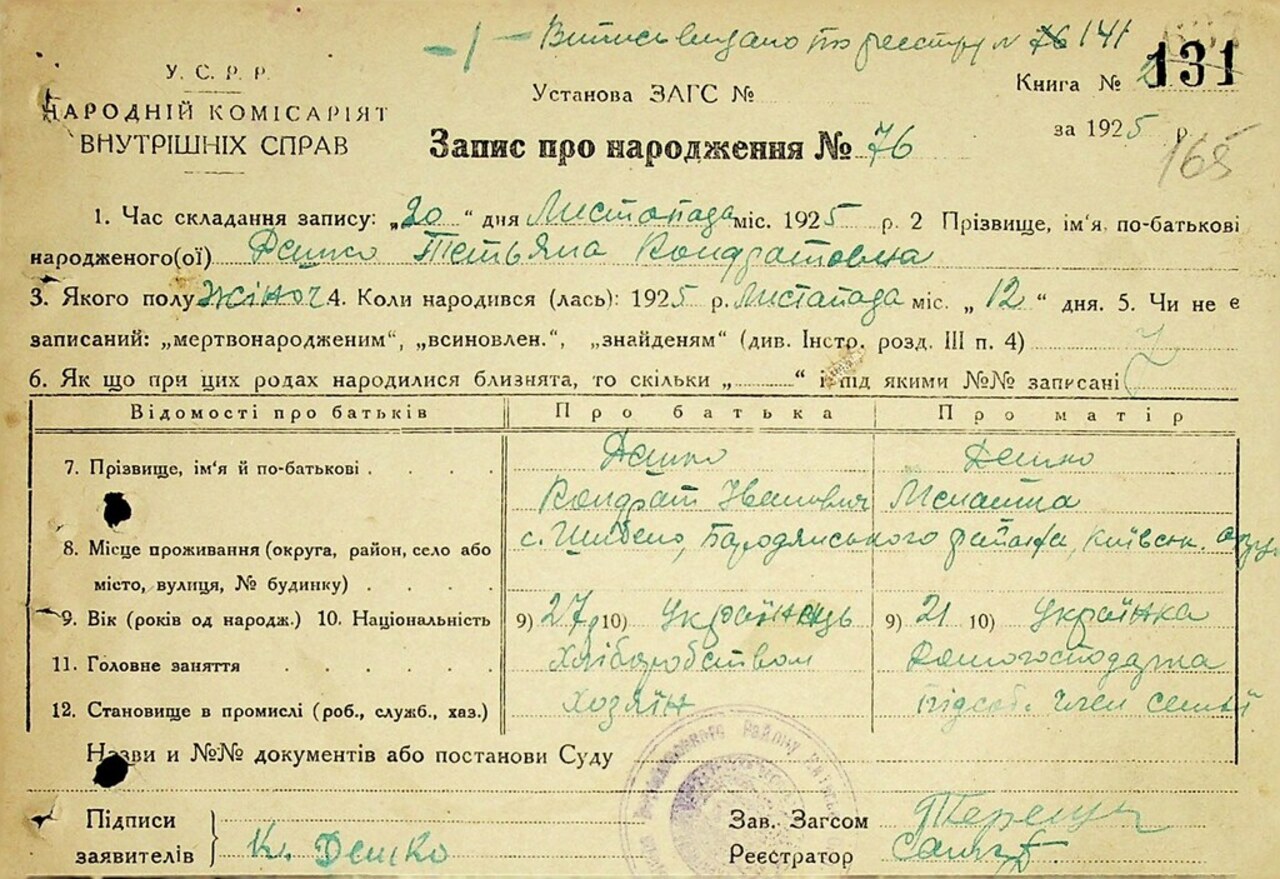 Випись видано по реєстру N 76 141
У. С. Р. Р.
НАРОДНІЙ КОМІСАРІЯТ
ВНУТРІШНІХ СПРАВ
Установа ЗАГС №
Книга № 2 131
за 1925 р.
165
Запис про народження № 76
1. Час складання запису: „20“ дня Листопада міс. 1925 р. 2 Прізвище, ім'я по-батькові
народженого(ої) Дешко Тетьяна Кондратовна
3. Якого полу Жіноч 4. Коли народився (лась): 1925 р. Листапада міс. „12“ дня. 5. Чи не є
записаний: „мертвонародженим“, „всиновлен.“, „знайденям“ (див. Інстр. розд. III п. 4)
6. Як що при цих родах народилися близнята, то скільки „ “ і під якими №№ записані
Відомості про батьків Про батька Про матір
7. Прізвище, ім'я й по-батькові Дешко Дешко
Кондрат Иванович
8. Місце проживання (округа, район, село або с. Шибено, Бородянського района, Київськ. окру.
місто, вулиця, № будинку)
9. Вік (років од народж.) 10. Національність 9) 27 10) Українець 9) 21 10) Українка
11. Головне заняття Хліборобством Домогосподарка
12. Становище в промислі (роб., служб., хаз.) Хозяїн підсоб. член семьї
Назви и №№ документів або постанови Суду
Підписи
заявителів К. Дешко
Зав. Загсом
Реєстратор